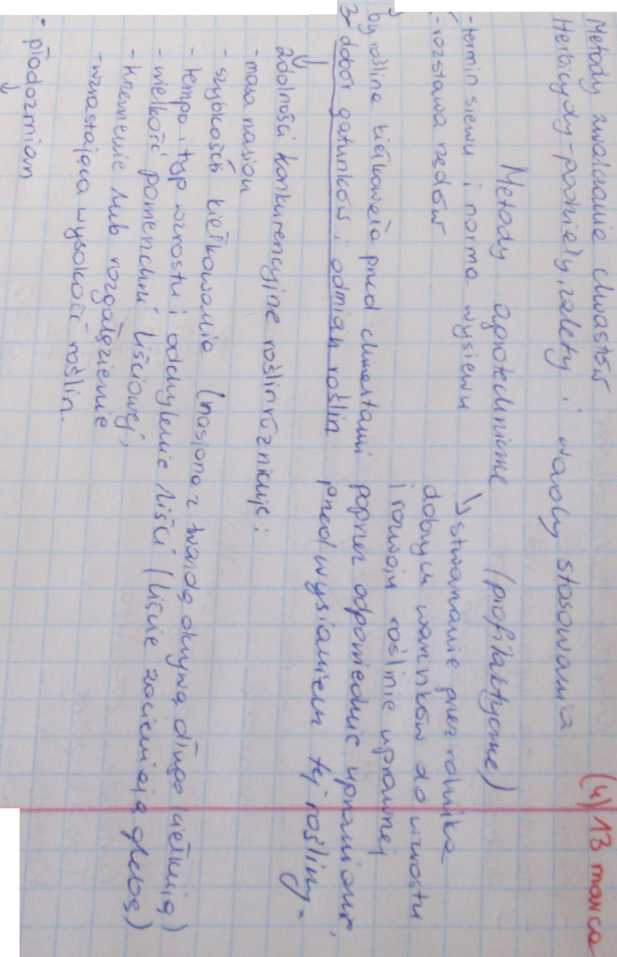 (4) 13 marca
Metody zwalczania chwastów
Herbicydy - podziały, zalety i wady stosowania
Metody agrotechniczne (profilaktyczne)
↳ stwarzanie przez rolnika dobrych warunków do wzrostu i rozwoju roślinie uprawnej poprzez odpowiednie uprawianie przed wysianiem tej rośliny.
- termin siewu i norma wysiewu
- rozstawa rzędów
by roślina kiełkowała przed chwastami
2- dobór gatunków i odmian roślin
zdolności konkurencyjne roślin różnicuje:
- masa nasion
- szybkość kiełkowania (nasiona z twardą okrywą długo kiełkują)
- tempo i typ wzrostu i odchylenie liści (liście zacieniają glebę)
- wielkość powierzchni liściowej,
- krzewienie lub rozgałęzienie
- wzrastająca wysokość roślin.
• płodozmian